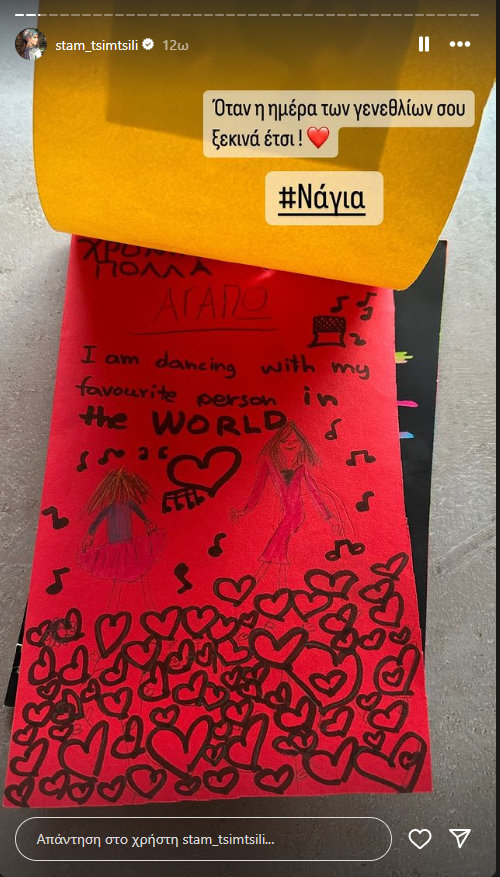 stam_tsimtsili 12ω
Όταν η ημέρα των γενεθλίων σου
ξεκινά έτσι ! ❤️
#Νάγια
ΧΡΟΝΙΑ
ΠΟΛΛΑ
ΑΓΑΠΩ
I am dancing with my
favourite person in
the WORLD
Απάντηση στο χρήστη stam_tsimtsili...